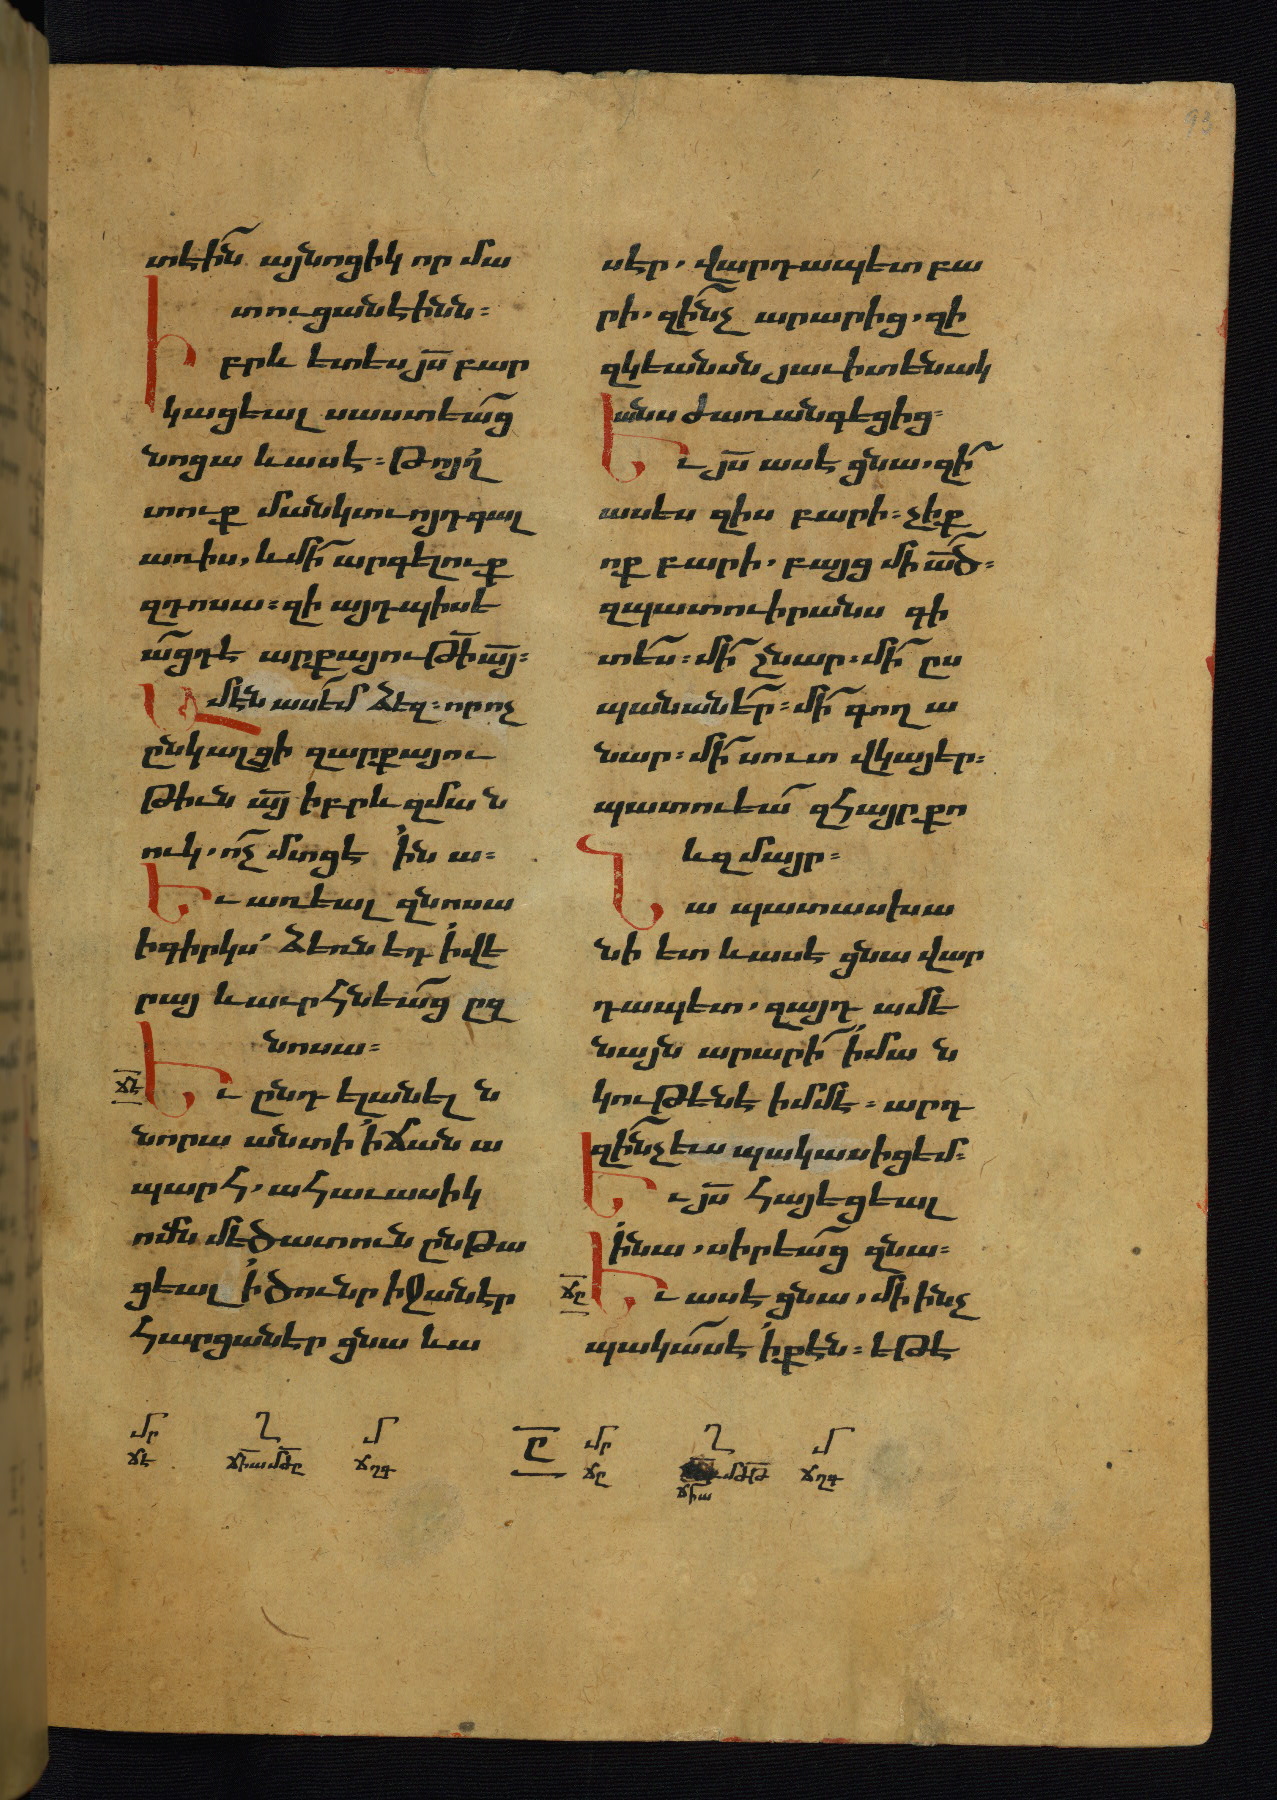 տէին այնոցիկ որ մա
տուցանէինն։
Իբրև ետես յս բար
կացեալ սաստեաց
նոցա և ասէ։ Թոյլ
տուք մանկտւոյդ գալ
առիս, և մի արգելուք
զդոսա։ զի այդպիսէ
ացդէ արքայութի այ։
Ամէն ասեմ ձեզ։ որ ոչ
ընկալցի զարքայու
թիւն այ իբրև զման
ուկ. ոչ մտցէ ի նա։
Եւ առեալ զնոսա
ի գիրկս՝ ձեռն եդ ի վե
րայ և աւրհնեաց զ
նոսա։
Եւ ընդ ելանել ն
նորա անտի ի ճանա
պարհ. ահաւասիկ
ոմն մեծատուն ընթա
ցեալ ի ծունր իջանէր
հարցանէր ցնա և ա
սէր. վարդապետ բա
րի. զինչ արարից. զի
զկեանսն յաւիտենակ
անս ժառանգեցից։
Եւ յս ասէ ցնա. զի
ասես զիս բարի։ չիք
ոք բարի. բայց մի ած։
զպատուիրանս գի
տես։ մի շնար։ մի ըս
պանաներ։ մի գողա
նար։ մի սուտ վկայեր։
պատուեա զհայր քո
և զմայր։
Նա պատասխա
նի ետ և ասէ ցնա վար
դապետ. զայդ ամե
նայն արարի ի ման
կութենէ իմմէ։ արդ
զինչ ևս պակասիցեմ։
Եւ յս հայեցեալ
ի նա. սիրեաց զնա։
Եւ ասէ ցնա. մի ինչ
պակասէ ի քէն։ եթէ
ճէ
ճը
մր
ճէ
ղ
մ
ճղգ
ը
մր
ճը
ղ
ճխա
մ
ճղգ